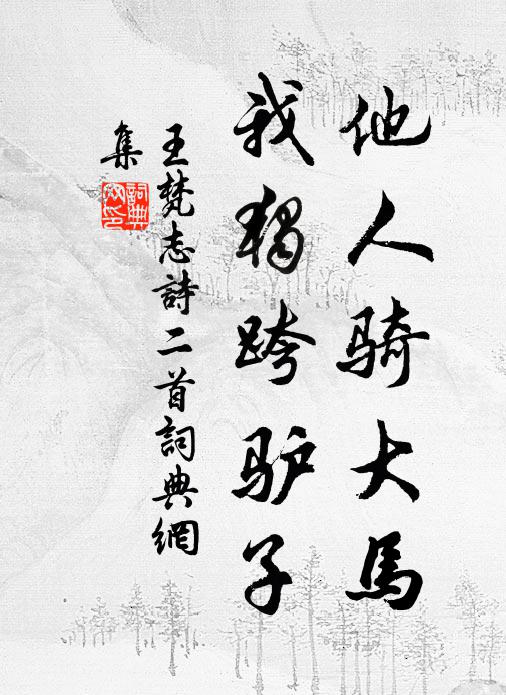 他人骑大馬
我独跨驴子
王梵志詩二首詞典網
集
詞典
网印